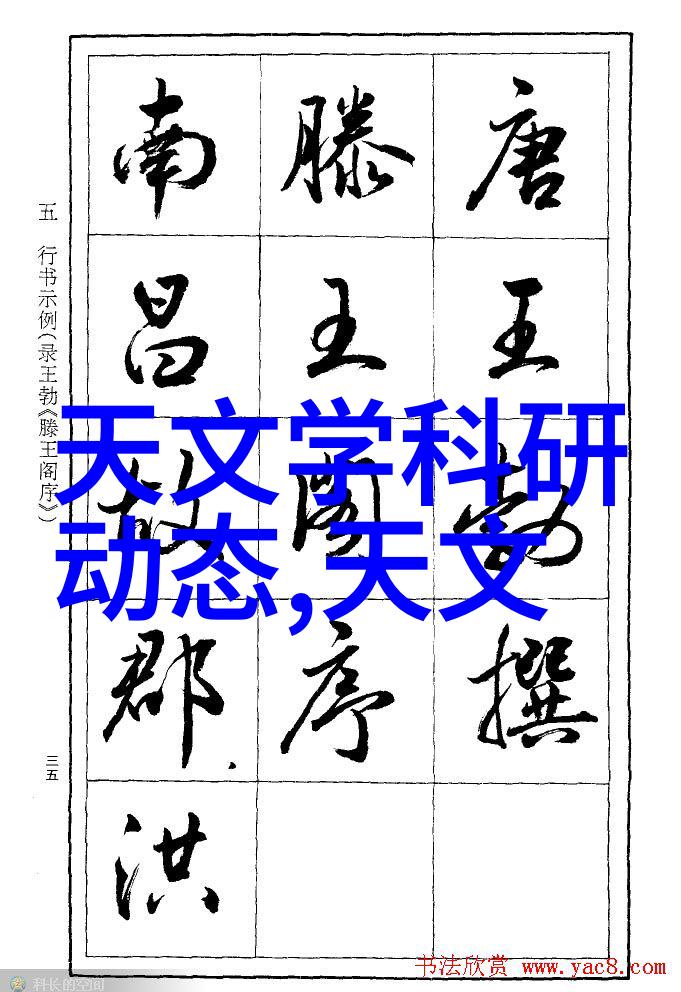 唐王勃撰
滕王阁序
南昌故郡洪
五 行书示例(录王勃《滕王阁序》)
三五
天文学科研
动态,天文
书法欣赏 www.yac8.com
科长的空间